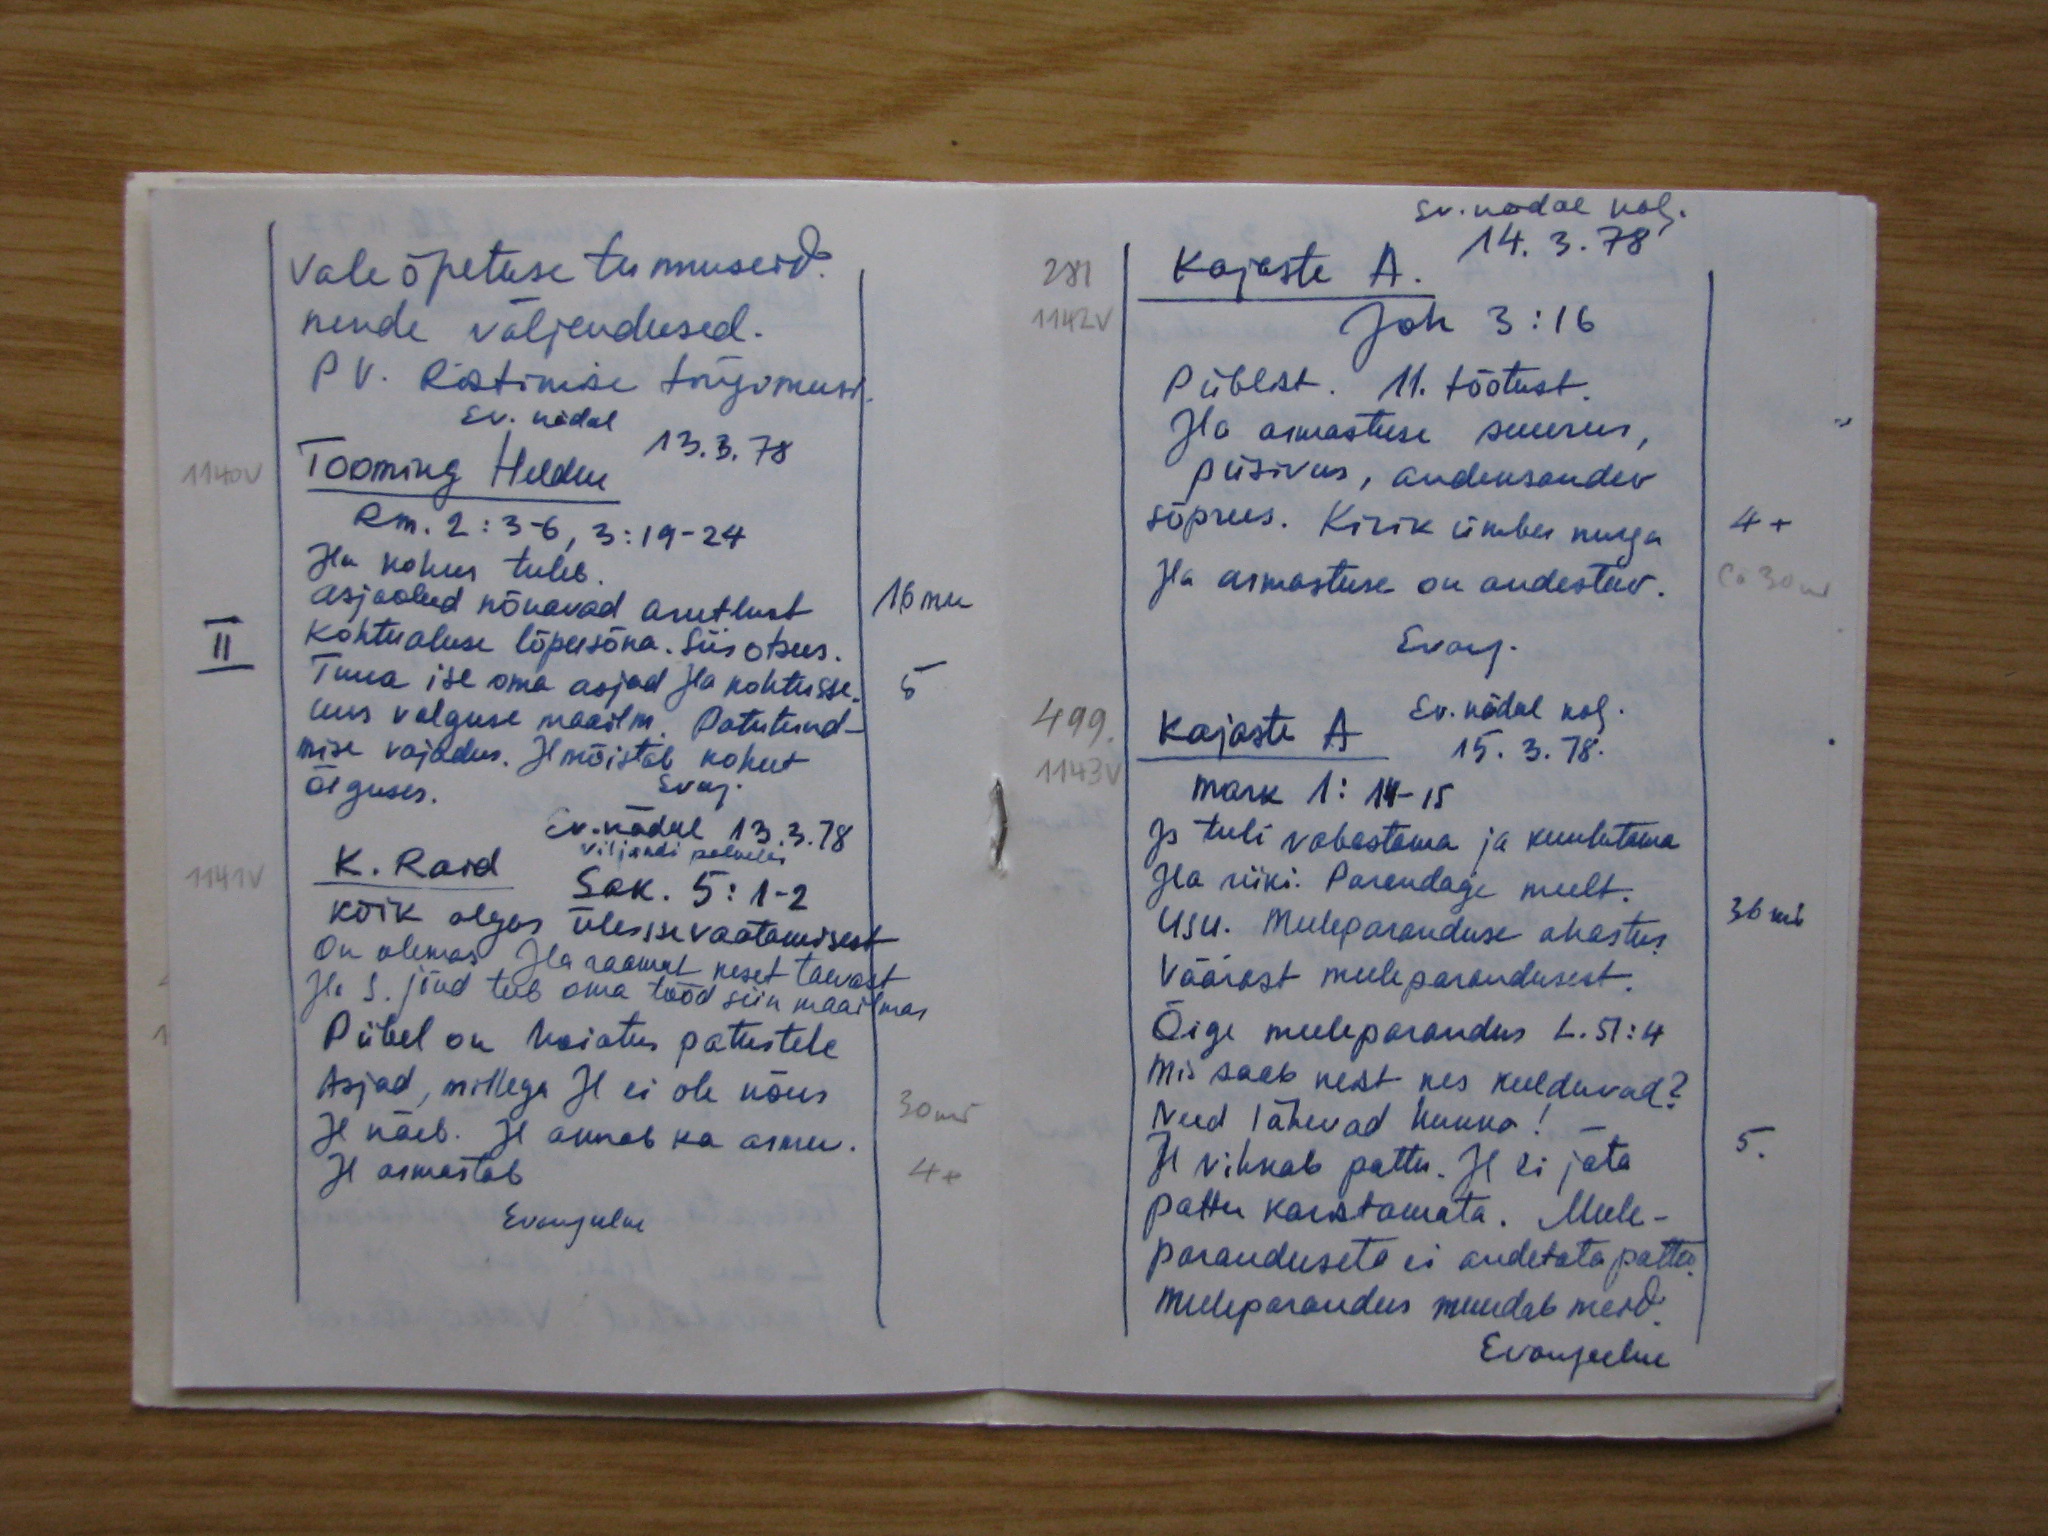 Vale õpetuse tunnuseid.
nende väljendused.
P V. Ristimise tõrjumusi.
Ev. nädal
1140V
Tooming Heldur 13.3.78
Rm. 2:3-6, 3:19-24
Jla kohus tuleb.
asjaolud nõuavad arutlust
16 mn
II
Kohtualuse lõpusõna. Siis otsus.
Tuua ise oma asjad Jla kohtusse.
5
uus valguse maailm. Patutund-
mise vajadus. Jl mõistab kohut
õiguses. Evag.
Ev. nädal 13.3.78
Viljandi palvelas
1141V
K. Raid
Sak. 5:1-2
Kõik algas ülessevaatamisest
On olemas Jla raamat keset taevast
Jla S. jõud teeb oma tööd siin maailmas
Piibel on hoiatus patustele
Asjad, millega Jl ei ole nõus
30 mn
Jl näeb. Jl annab ka armu.
Jl armastab
4+
Evangeelne
Ev. nädal kolj.
14.3.78
281
Kajaste A.
1142V
Joh 3:16
Piiblist. 11. tõotust.
Jla armastuse suurus,
püsivus, andeksandev
sõprus. Kirik ümber nurga
4+
Jla armastuse on andestav.
Ca 30 mn
Evag.
Ev. nädal kolj.
499.
Kajaste A
15.3.78.
1143V
Mark 1:14-15
Js tuli vabastama ja kuulutama
Jla riiki. Parandage meelt.
Usu. Meeleparanduse ahastus.
36 mn
Väärast meeleparandusest.
Õige meeleparandus L. 51:4
Mis saab neist kes keelduvad?
Need lähevad hukka!
Jl vihkab pattu. Jl ei jäta
5.
pattu karistamata. Meele-
paranduseta ei andetata pattu.
Meeleparandus muudab meid.
Evangeelne